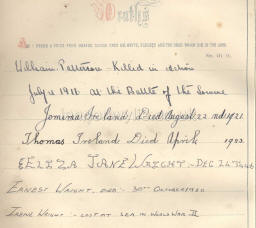 Deaths
I HEARD A VOICE FROM HEAVEN SAYING UNTO ME WRITE, BLESSED ARE THE DEAD WHICH DIE IN THE LORD.
William Patterson - Killed in Action
July 1916 at the Battle of the Somme
Jemima Ireland, Died August 22nd 1921
Thomas Ireland Died April 1923
ELIZA JANE WRIGHT - DEC 24 1946
ERNEST WRIGHT DIED - 30th OCTOBER
IRENE WRIGHT - LOST AT SEA IN WORLD WAR II